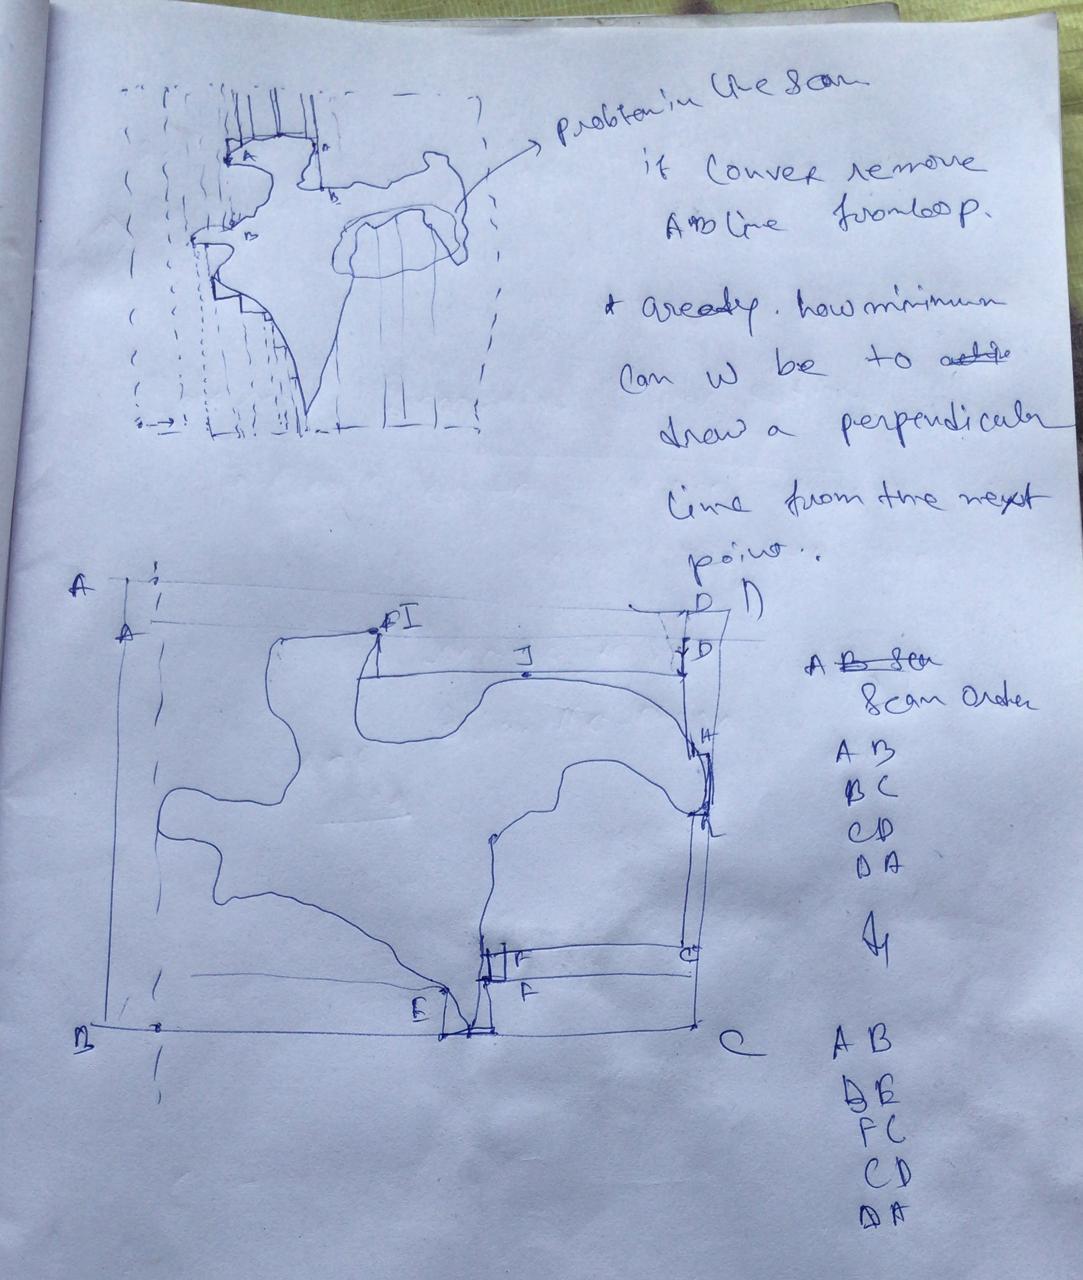 A
B
B
B
problem in the scan
if Convex remove
AB line from loop.
* greedy. how minimum
Can w be to
draw a perpendicular
line from the next
point..
A
A
I
J
D
D
D
H
E
F
F
C
B
C
A B Scn
Scan Order
A B
B C
C D
D A
A B
B E
F C
C D
D A